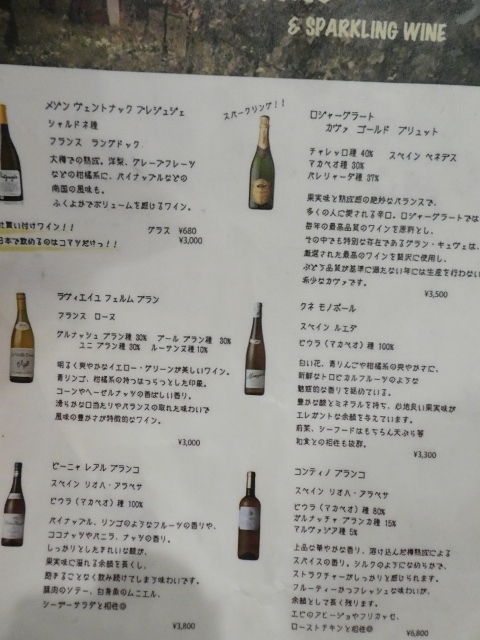 & SPARKLING WINE
メゾン ヴェントナック プレジュジェ
シャルドネ種
フランス ラングドック
大樽での熟成。洋梨、グレープフルーツ
などの柑橘系に、パイナップルなどの
南国の風味も。
ふくよかでボリュームを感じるワイン。
買い付けワイン!!
日本で飲めるのはコマツだけっ!!
グラス ¥680
¥3,000
スパークリング!!
ロジャーグラート
カヴァ ゴールド ブリュット
チャレッロ種 40% スペイン ペネデス
マカベオ種 30%
パレリャーダ種 37%
果実味と熟成感の絶妙なバランスで、
多くの人に愛される辛口。ロジャーグラートでは
毎年の最高品質のワインを原料とし、
その中でも特別な存在であるグラン・キュヴェは、
厳選された最高のワインを贅沢に使用し、
ぶどう品質が基準に満たない年には生産を行わない
希少なカヴァです。
¥3,500
ラヴィエイユ フェルム ブラン
フランス ローヌ
グルナッシュ ブラン種 30% ブール ブラン種 30%
ユニ ブラン種 30% ルーサンヌ種 10%
明るく爽やかなイエロー・グリーンが美しいワイン。
青リンゴ、柑橘系の持つはつらつとした印象。
コーンやヘーゼルナッツの香ばしい香り。
滑らかな口当たりやバランスの取れた味わいで
風味の豊かさが特徴的なワイン。
¥3,000
クネ モノポール
スペイン ルエダ
ビウラ(マカベオ)種 100%
白い花、青りんごや柑橘系の爽やかさに、
新鮮なトロピカルフルーツのような
魅惑的な香りを秘めている。
豊かな酸とミネラルを持ち、心地良い果実味が
エレガントな余韻を与えています。
前菜、シーフードはもちろん天ぷら等
和食との相性も抜群。
¥3,300
ビーニャ レアル ブランコ
スペイン リオハ・アラベサ
ビウラ(マカベオ)種 100%
パイナップル、リンゴのようなフルーツの香りや、
ココナッツやバニラ、ナッツの香り。
しっかりとしたきれいな酸が、
果実味に溢れる余韻を長くし、
飽きることなく飲み続けてしまう味わいです。
豚肉のソテー、白身魚のムニエル、
シーザーサラダと相性◎
¥3,800
コンティノ ブランコ
スペイン リオハ・アラベサ
ビウラ(マカベオ)種 80%
ガルナッチャ ブランカ種 15%
マルヴァジア種 5%
上品な華やかな香り、溶け込んだ樽熟成による
スパイスの香り。シルクのようななめらかで、
ストラクチャーがしっかりと感じられます。
フルーティーかつフレッシュな味わいが、
余韻として長く残ります。
エビのアヒージョやフリカッセ、
ローストチキンと相性◎
¥6,800